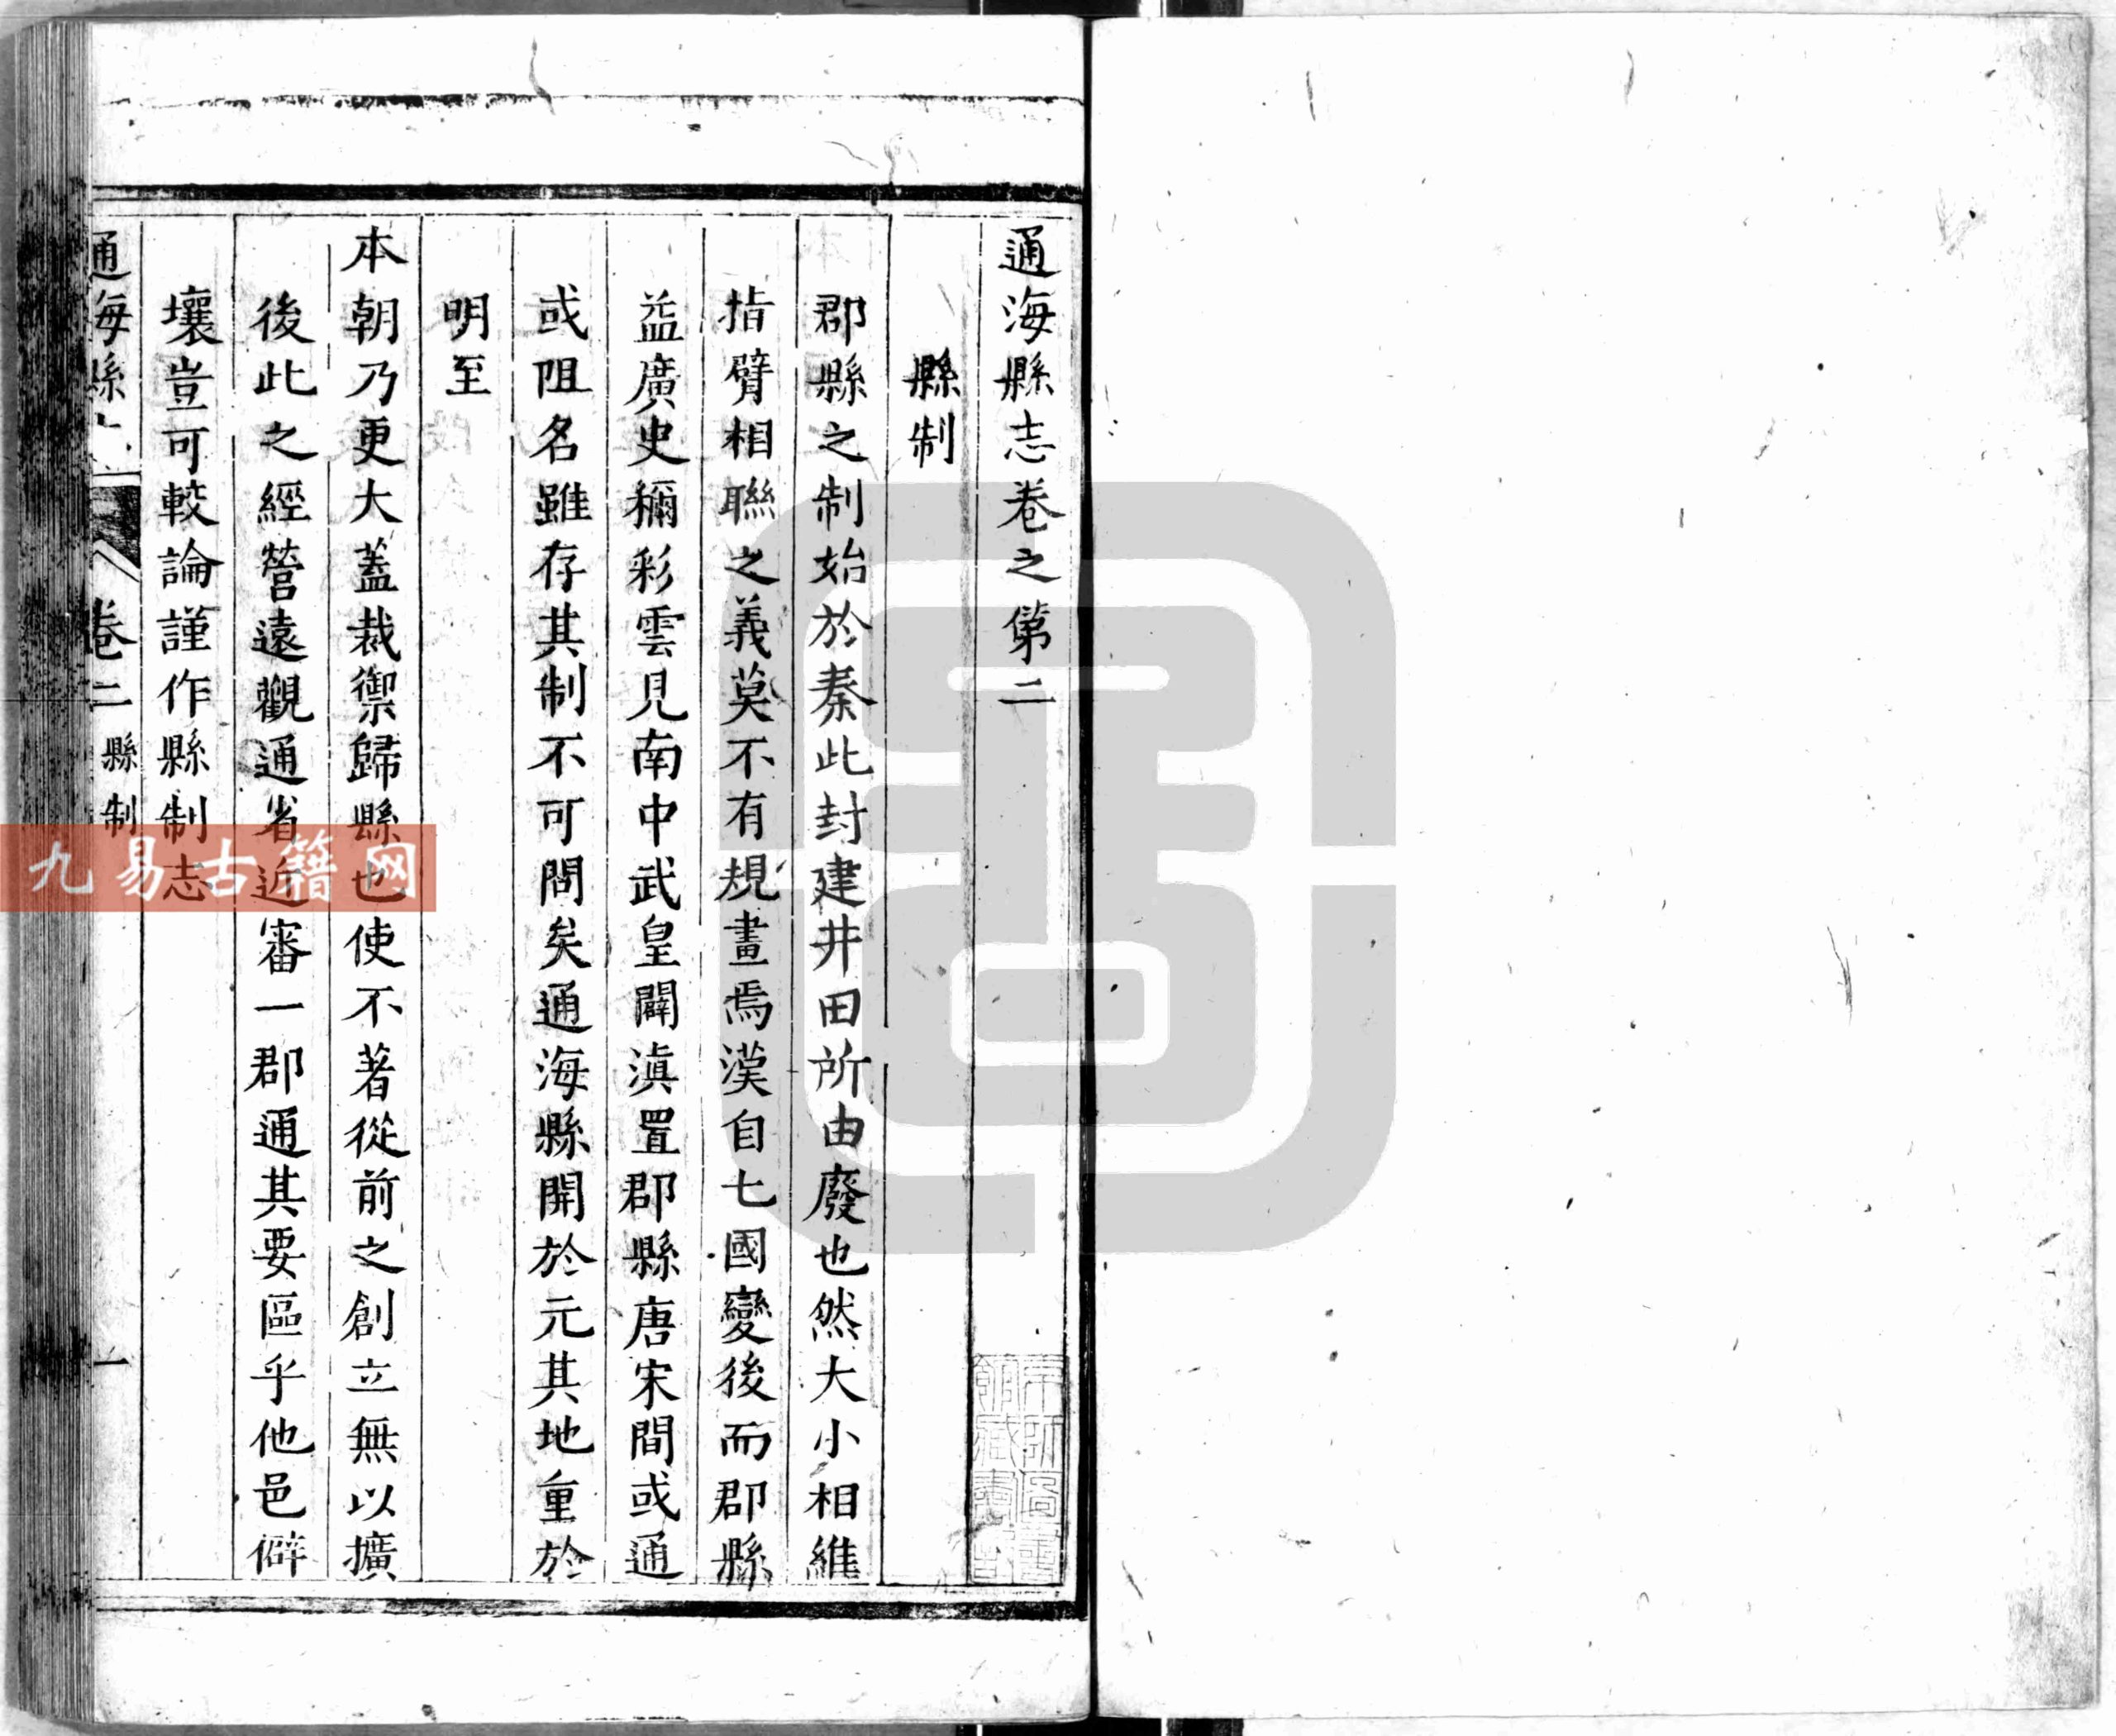 通海縣志卷之第二
縣制
郡縣之制始於秦此封建井田所由廢也然大小相維
指臂相聯之義莫不有規畫焉漢自七國變後而郡縣
益廣史稱彩雲見南中武皇闢滇置郡縣唐宋間或通
或阻名雖存其制不可問矣通海縣開於元其地重於
明至
本朝乃更大蓋裁禦歸縣也使不著從前之創立無以擴
後此之經營遠觀通省近審一郡通其要區乎他邑僻
壤豈可較論謹作縣制志
通海縣 卷二 縣制 一
九易古籍网